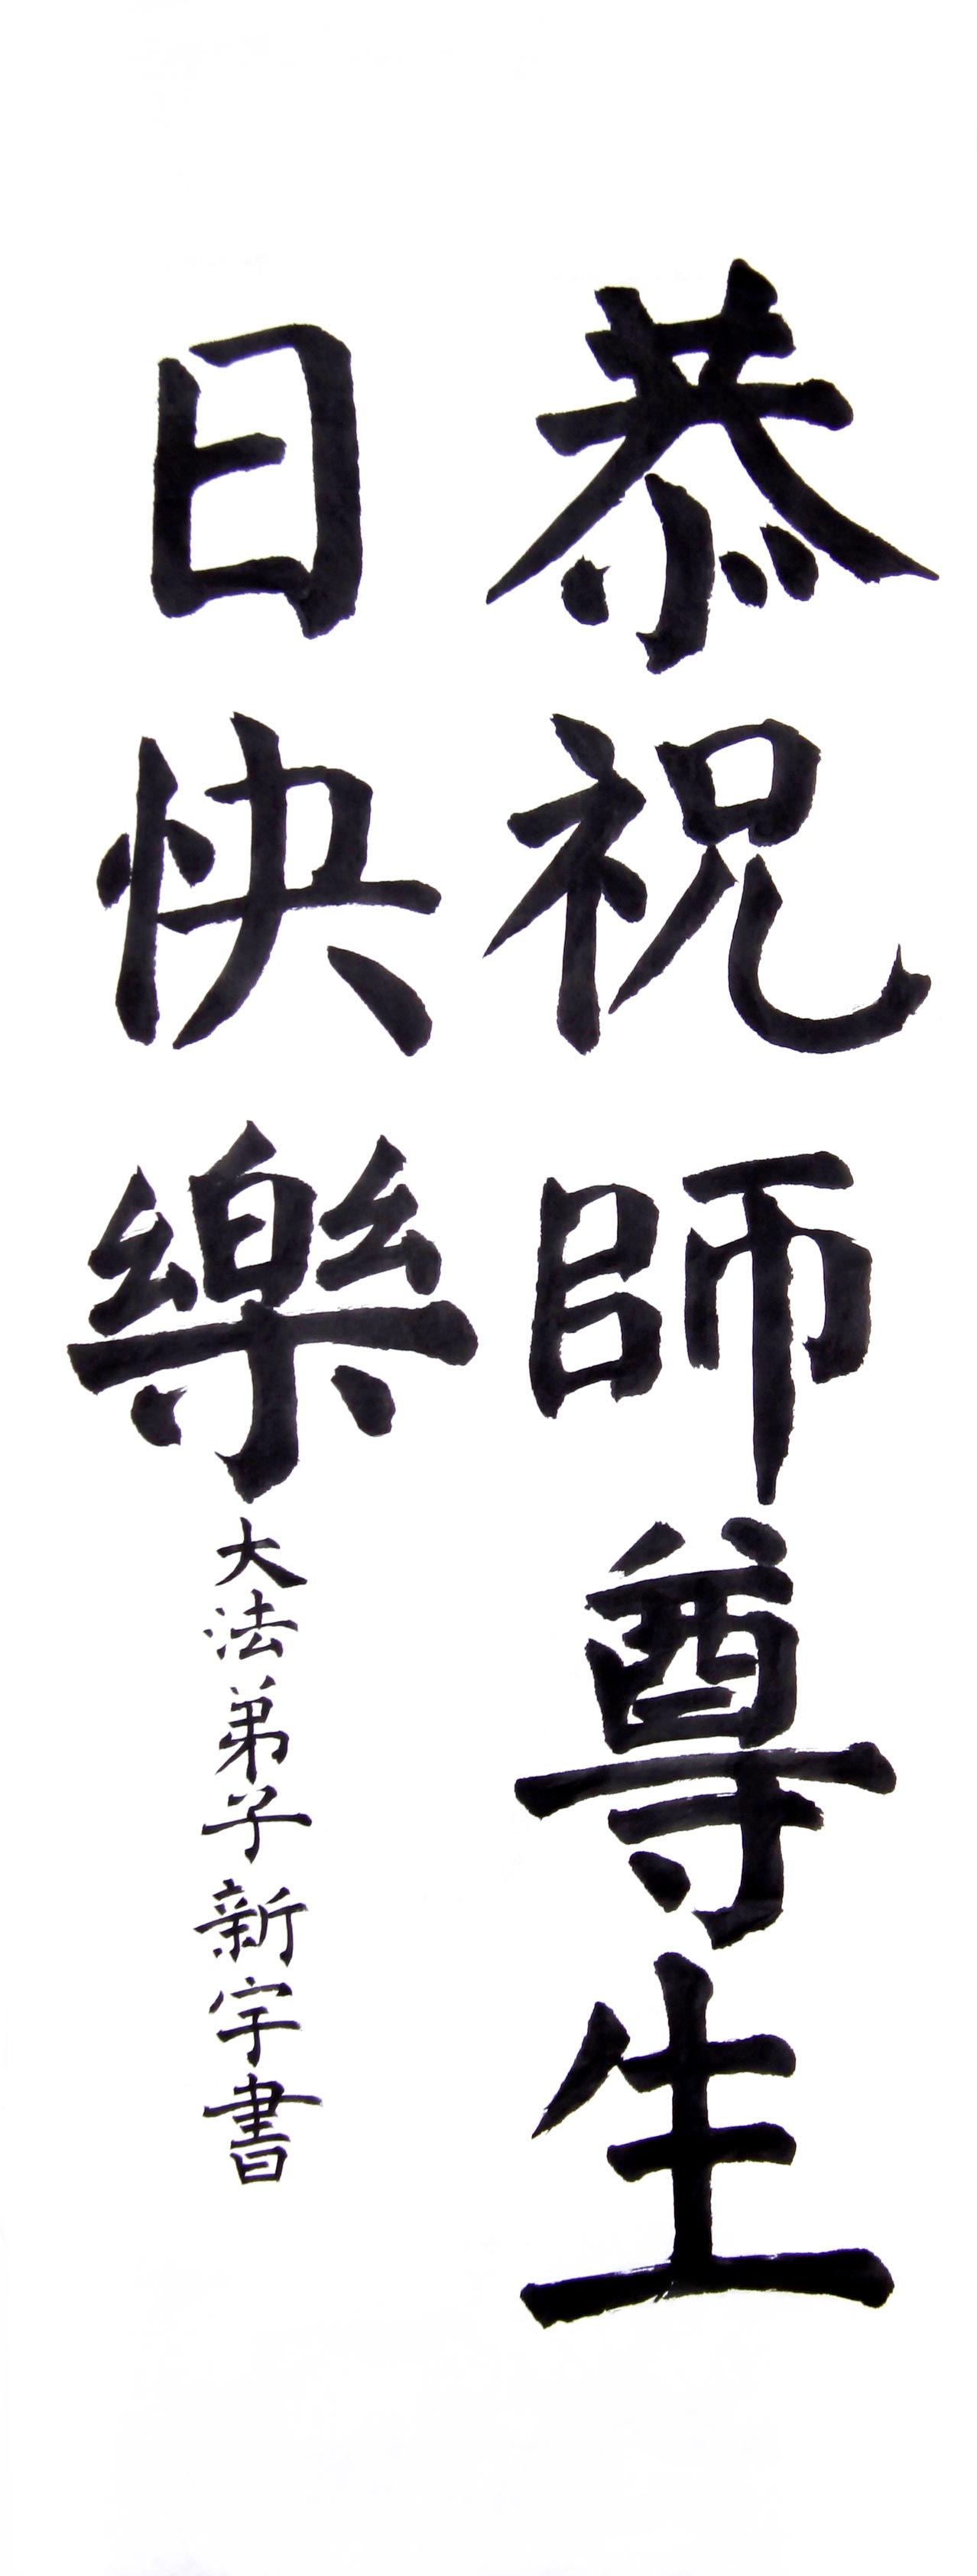 恭祝師尊生
日快樂
大法弟子新宇書